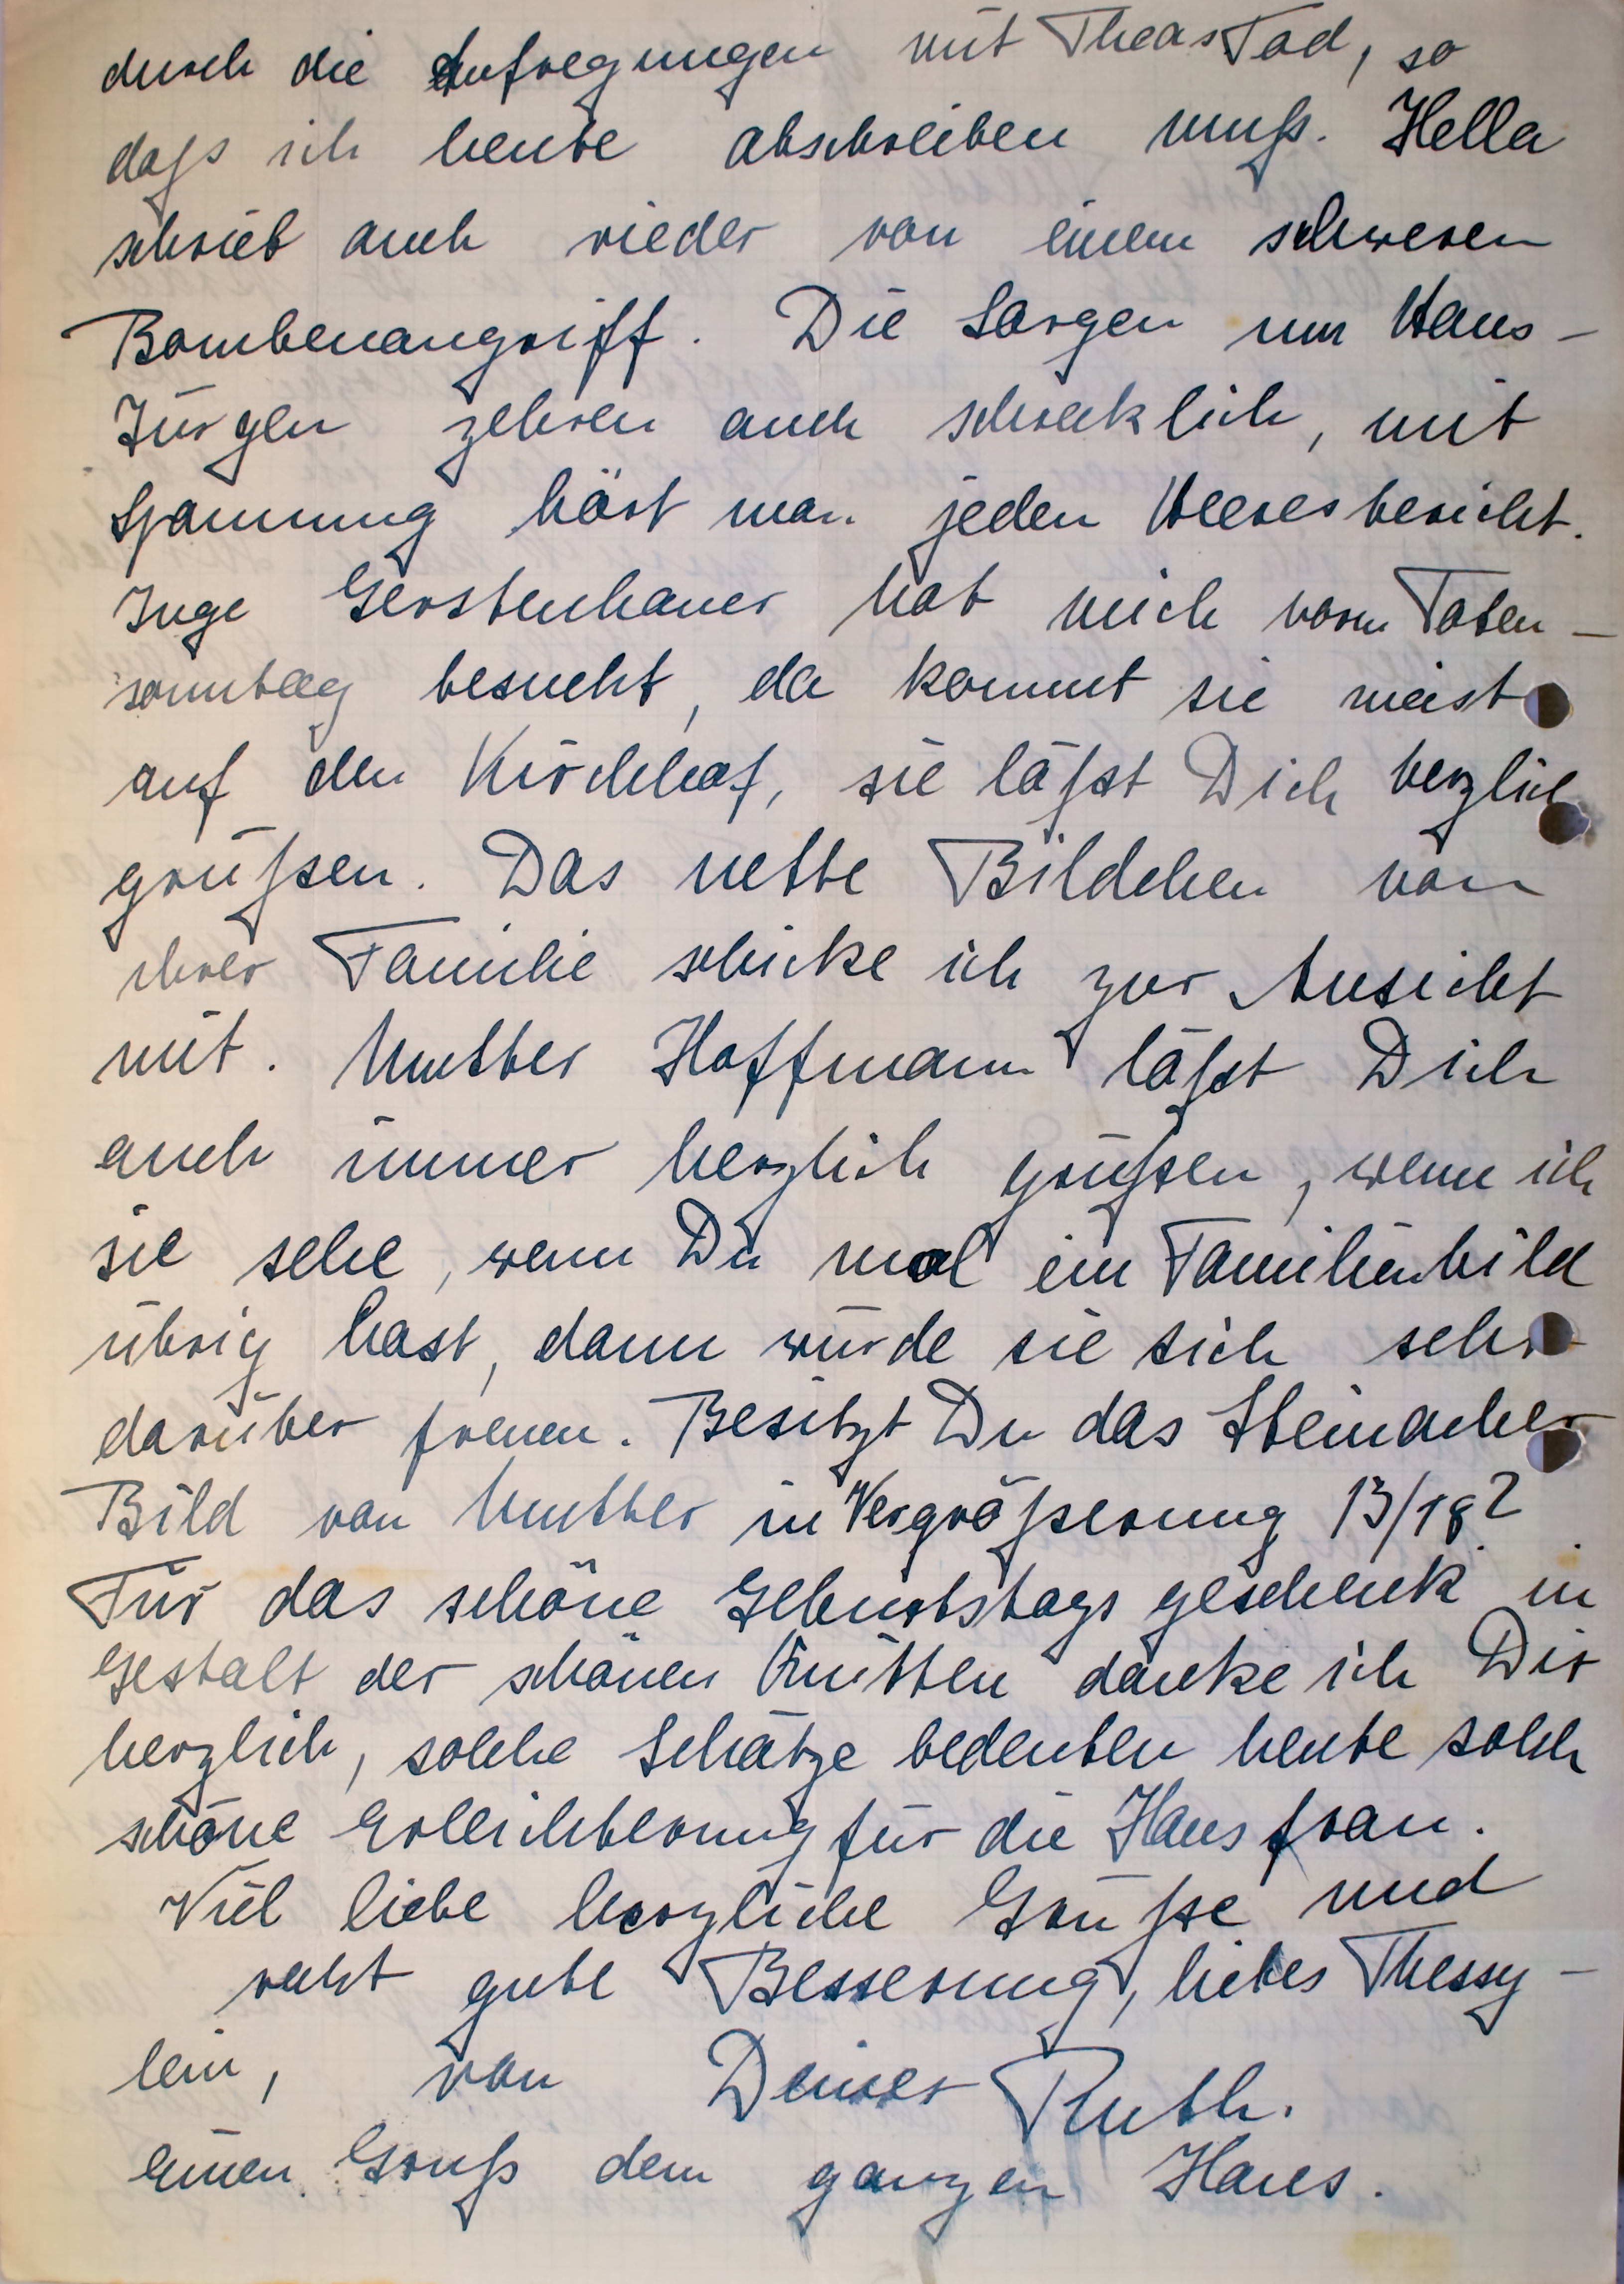 durch die Aufregungen mit Theas Tod, so
daß ich heute abschreiben muß. Hella
schrieb auch wieder von einem schweren
Bombenangriff. Die Sorgen um Hans-
Jürgen zehren auch schrecklich, mit
Spannung hört man jeden Heeresbericht.
Inge Gerstenhauer hat mich vorm Toten-
sonntag besucht, da kommt sie meist
auf den Kirchhof, sie läßt Dich herzlich
grüßen. Das nette Bildchen von
ihrer Familie schicke ich zur Ansicht
mit. Mutter Hoffmann läßt Dich
auch immer herzlich grüßen, wenn ich
sie sehe, wenn Du mal ein Familienbild
übrig hast, dann würde sie sich sehr
darüber freuen. Besitzt Du das Steinacher
Bild von Mutter in Vergrößerung 13/18?
Für das schöne Geburtstagsgeschenk in
Gestalt der schönen Quitten danke ich Dir
herzlich, solche Schätze bedeuten heute solch
schöne Erleichterung für die Hausfrau.
Viel liebe herzliche Grüße und
recht gute Besserung, liebes Thessy-
lein, von Deiner Ruth.
Einen Gruß dem ganzen Haus.